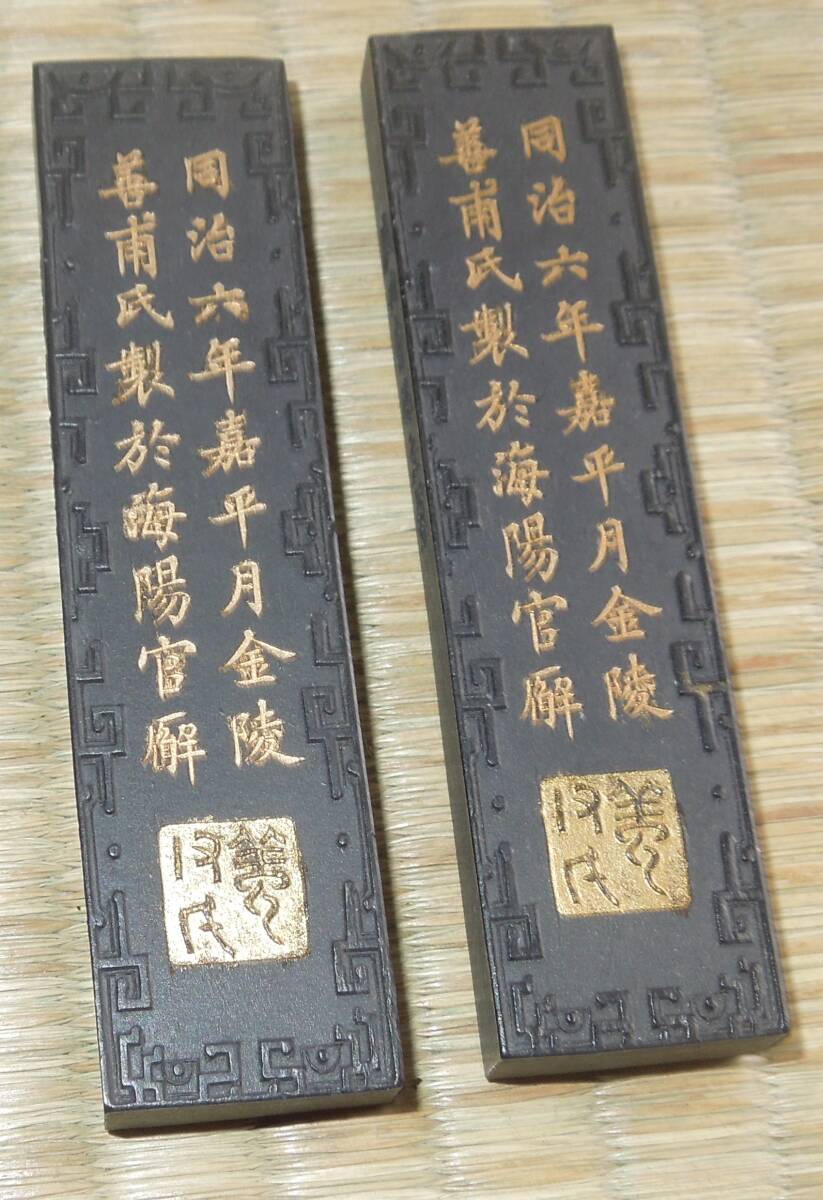 同治六年嘉平月金陵
善甫氏製於海陽官廨
同治六年嘉平月金陵
善甫氏製於海陽官廨